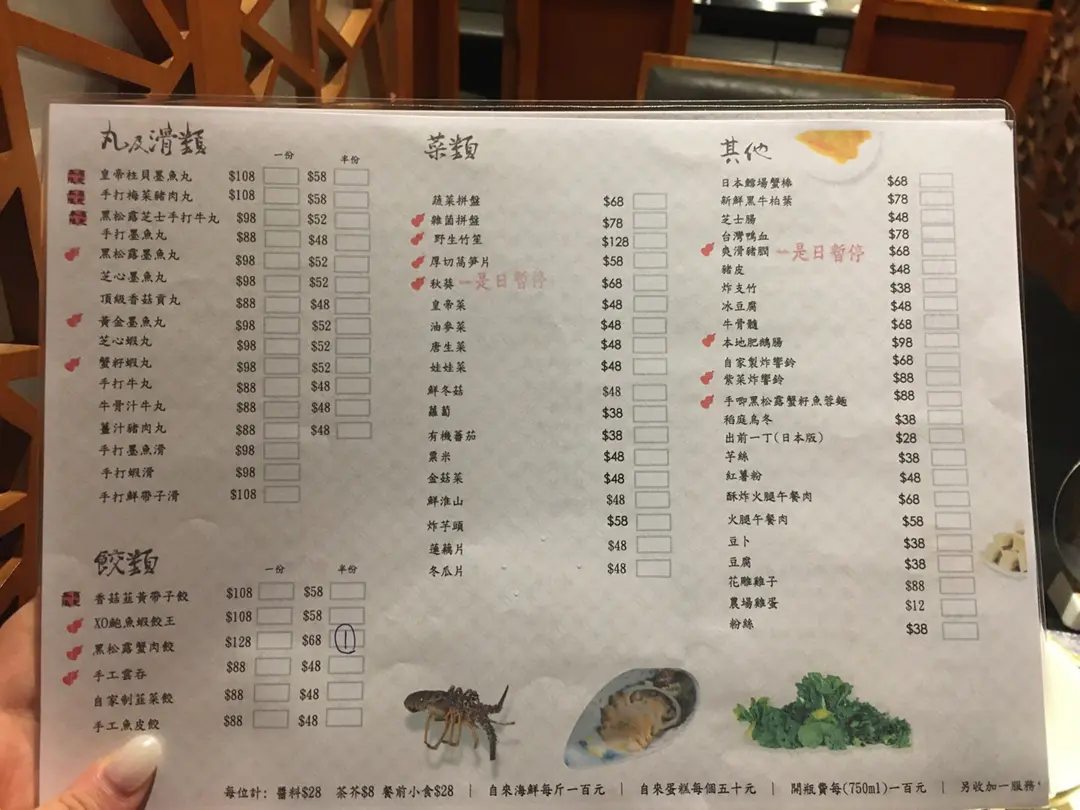 丸及滑類
一份 半份
皇帝柱貝墨魚丸 $108 $58
手打梅菜豬肉丸 $108 $58
黑松露芝士手打牛丸 $98 $52
手打墨魚丸 $88 $48
黑松露墨魚丸 $98 $52
芝心墨魚丸 $98 $52
頂級香菇貢丸 $88 $48
黃金墨魚丸 $98 $52
芝心蝦丸 $98 $52
蟹籽蝦丸 $98 $52
手打牛丸 $88 $48
牛骨汁牛丸 $88 $48
薑汁豬肉丸 $88 $48
手打墨魚滑 $98
手打蝦滑 $98
手打鮮帶子滑 $108
餃類
一份 半份
香菇韮黃帶子餃 $108 $58
XO鮑魚蝦餃王 $108 $58
黑松露蟹肉餃 $128 $68 1
手工雲吞 $88 $48
自家制韮菜餃 $88 $48
手工魚皮餃 $88 $48
菜類
蔬菜拼盤 $68
雜菌拼盤 $78
野生竹笙 $128
厚切萵筍片 $58
秋葵 一是日暫停 $68
皇帝菜 $48
油麥菜 $48
唐生菜 $48
娃娃菜 $48
鮮冬菇 $48
蘿蔔 $38
有機蕃茄 $38
粟米 $48
金菇菜 $48
鮮淮山 $48
炸芋頭 $58
蓮藕片 $48
冬瓜片 $48
其他
日本鱈場蟹棒 $68
新鮮黑牛柏葉 $78
芝士腸 $48
台灣鴨血 $78
爽滑豬膶 一是日暫停 $68
豬皮 $48
炸支竹 $38
冰豆腐 $48
牛骨髓 $68
本地肥鵝腸 $98
自家製炸響鈴 $68
紫菜炸響鈴 $88
手唧黑松露蟹籽魚蓉麵 $88
稻庭烏冬 $38
出前一丁(日本版) $28
芋絲 $38
紅薯粉 $48
酥炸火腿午餐肉 $68
火腿午餐肉 $58
豆卜 $38
豆腐 $38
花雕雞子 $88
農場雞蛋 $12
粉絲 $38
每位計: 醬料$28 茶芥$8 餐前小食$28 | 自來海鮮每斤一百元 | 自來蛋糕每個五十元 | 開瓶費每(750ml)一百元 | 另收加一服務